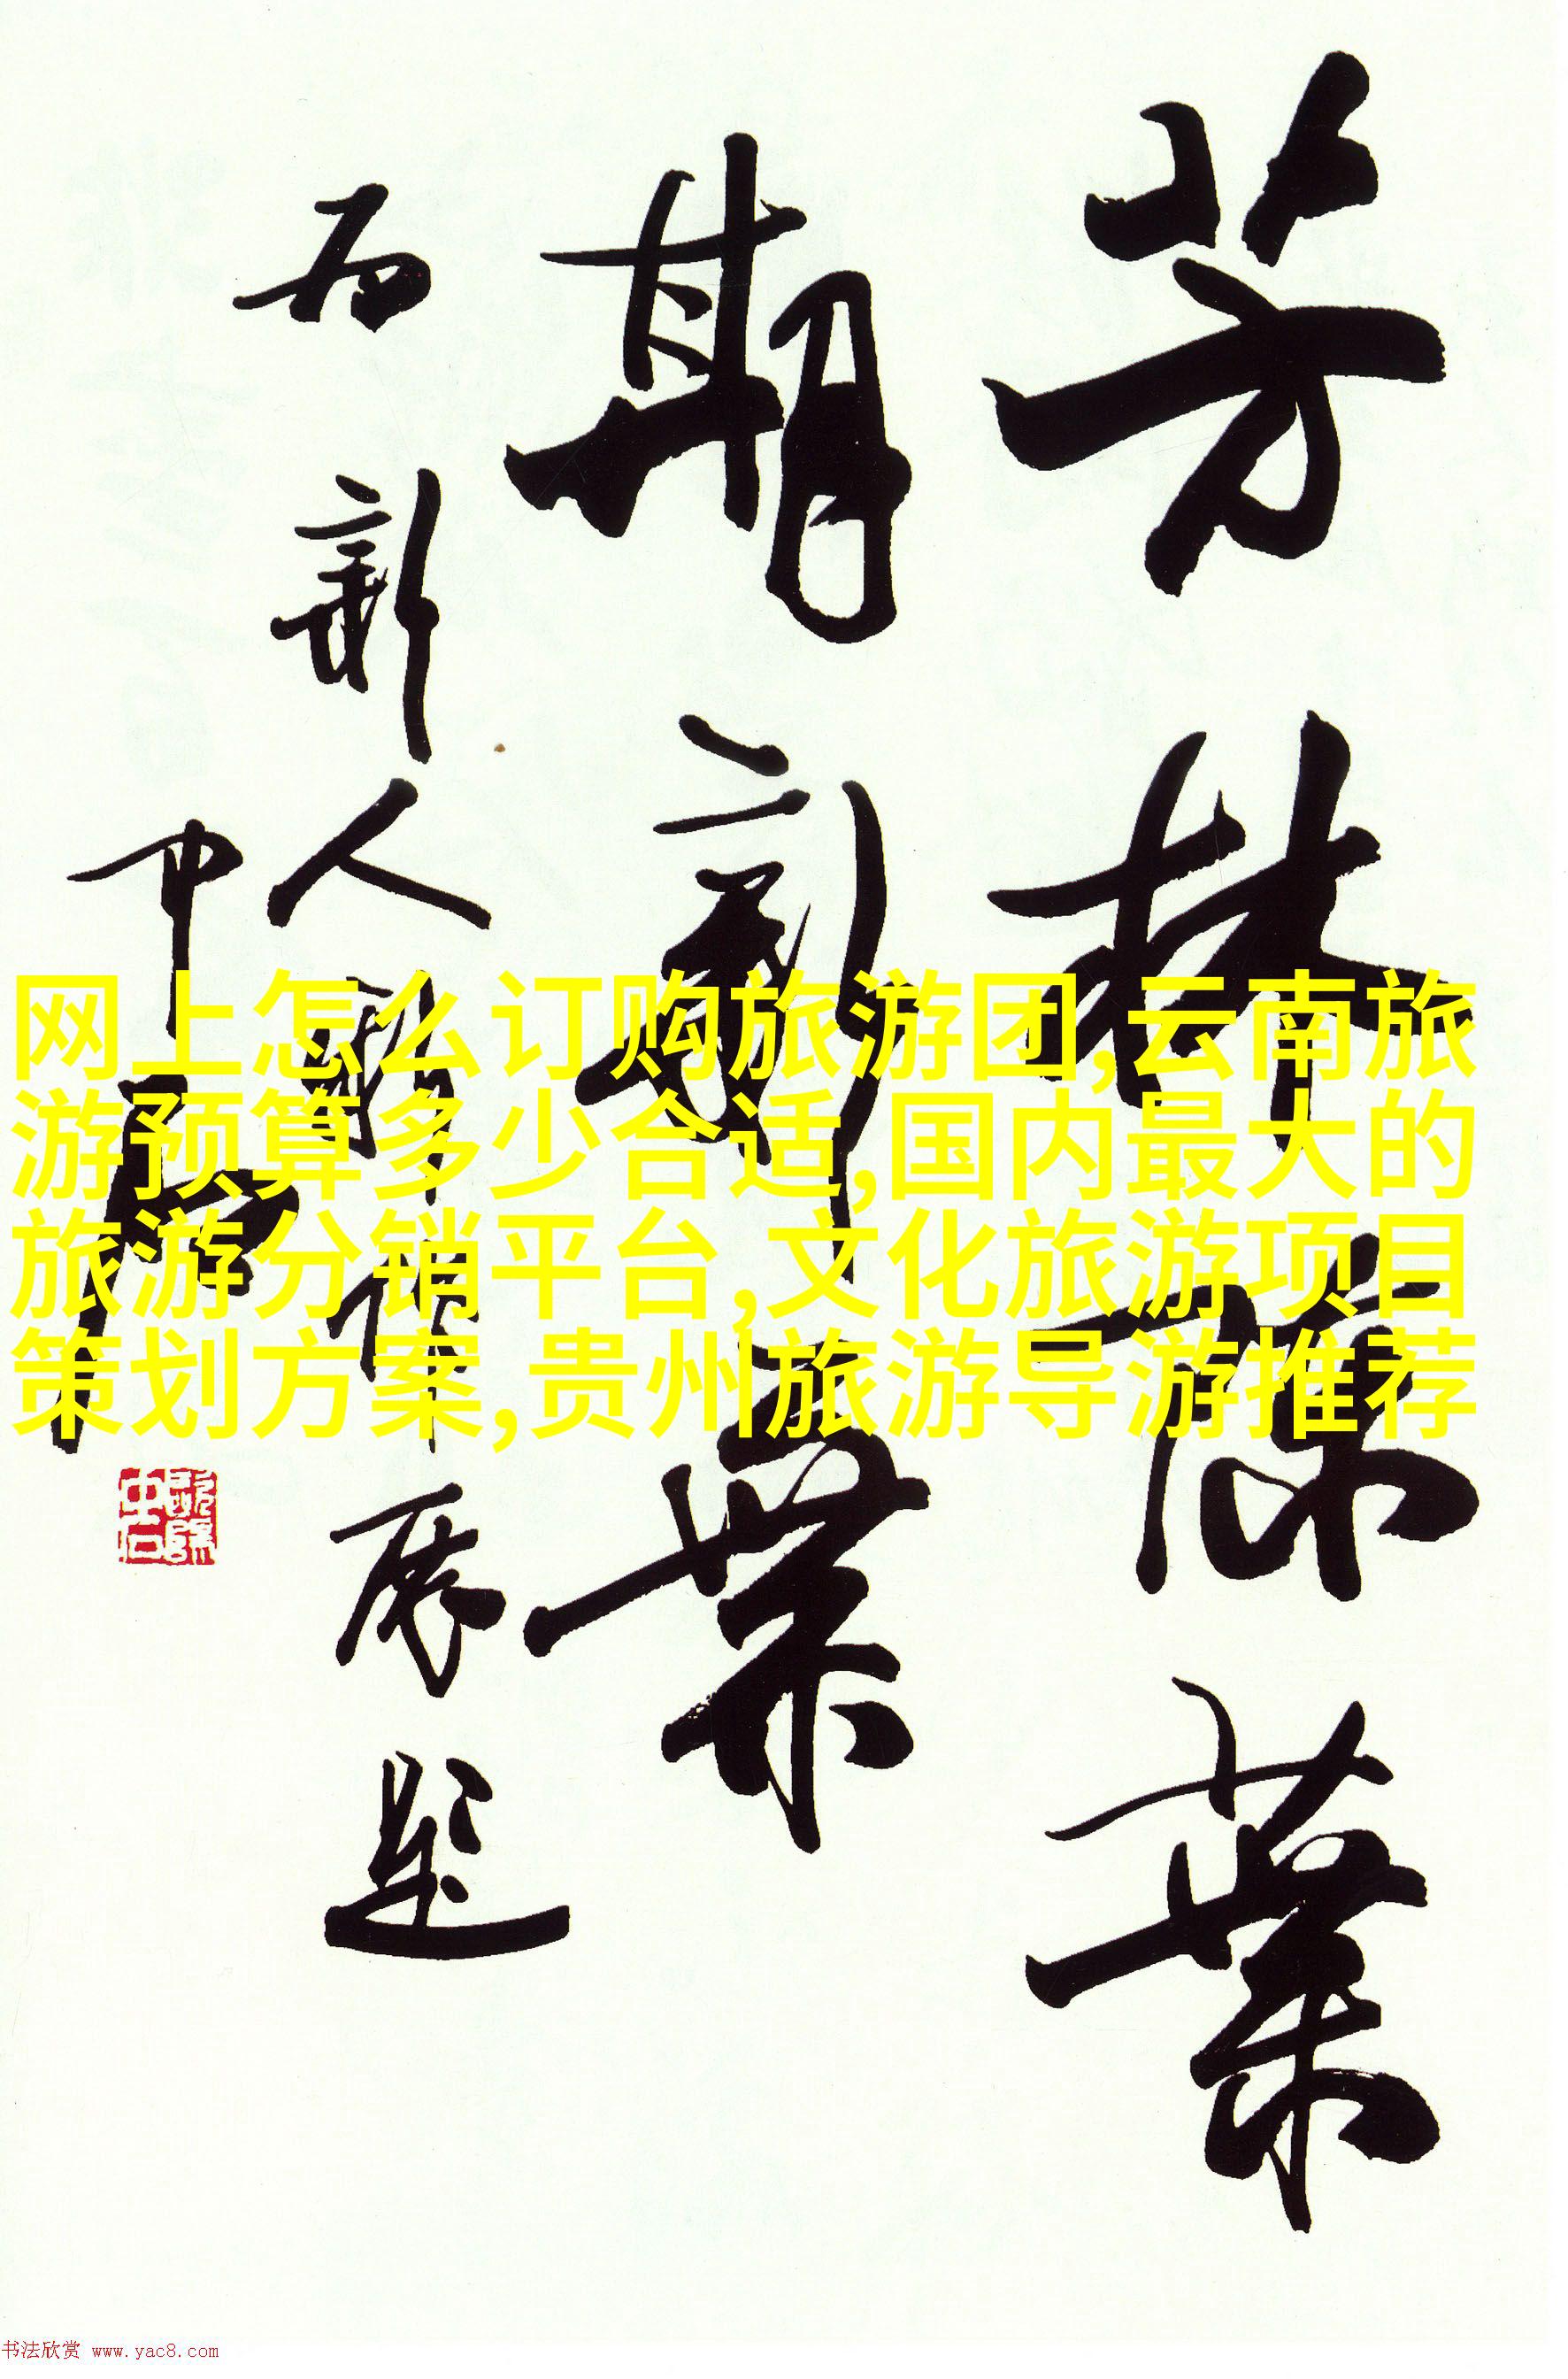 芳林陳葉
期新葉
为新人
展題
中石
网上怎么订购旅游团,云南旅
游预算多少合适,国内最大的
旅游分销平台,文化旅游项目
策划方案,贵州旅游导游推荐
书法欣赏 www.yac8.com